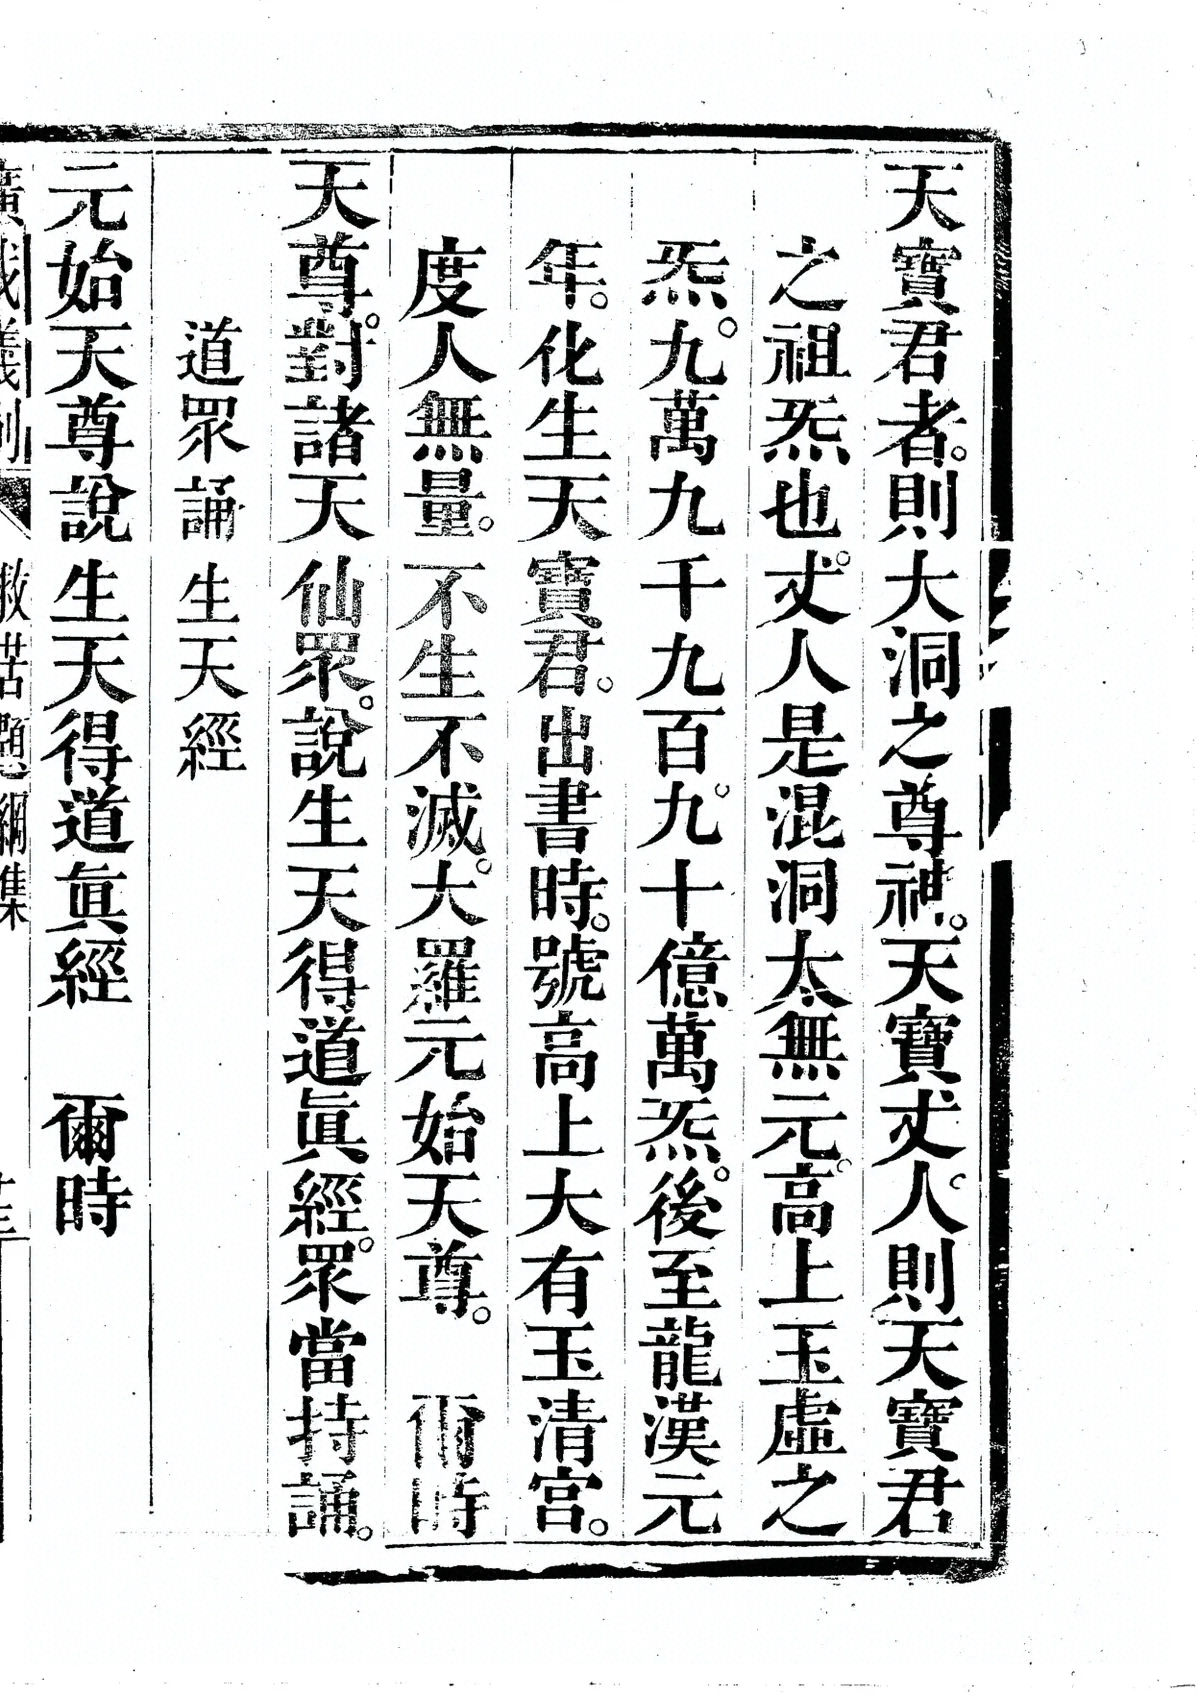 天寶君者。則大洞之尊神。天寶𠀋人。則天寶君
之祖炁也。𠀋人是混洞太無元。高上玉虛之
炁。九萬九千九百。九十億萬炁。後至龍漢元
年。化生天寶君。出書時。號高上大有玉清宮。
度人無量。不生不滅。大羅元始天尊。　爾時
天尊。對諸天仙眾。說生天得道眞經。眾當持誦。
道眾誦生天經
元始天尊說生天得道眞經　爾時